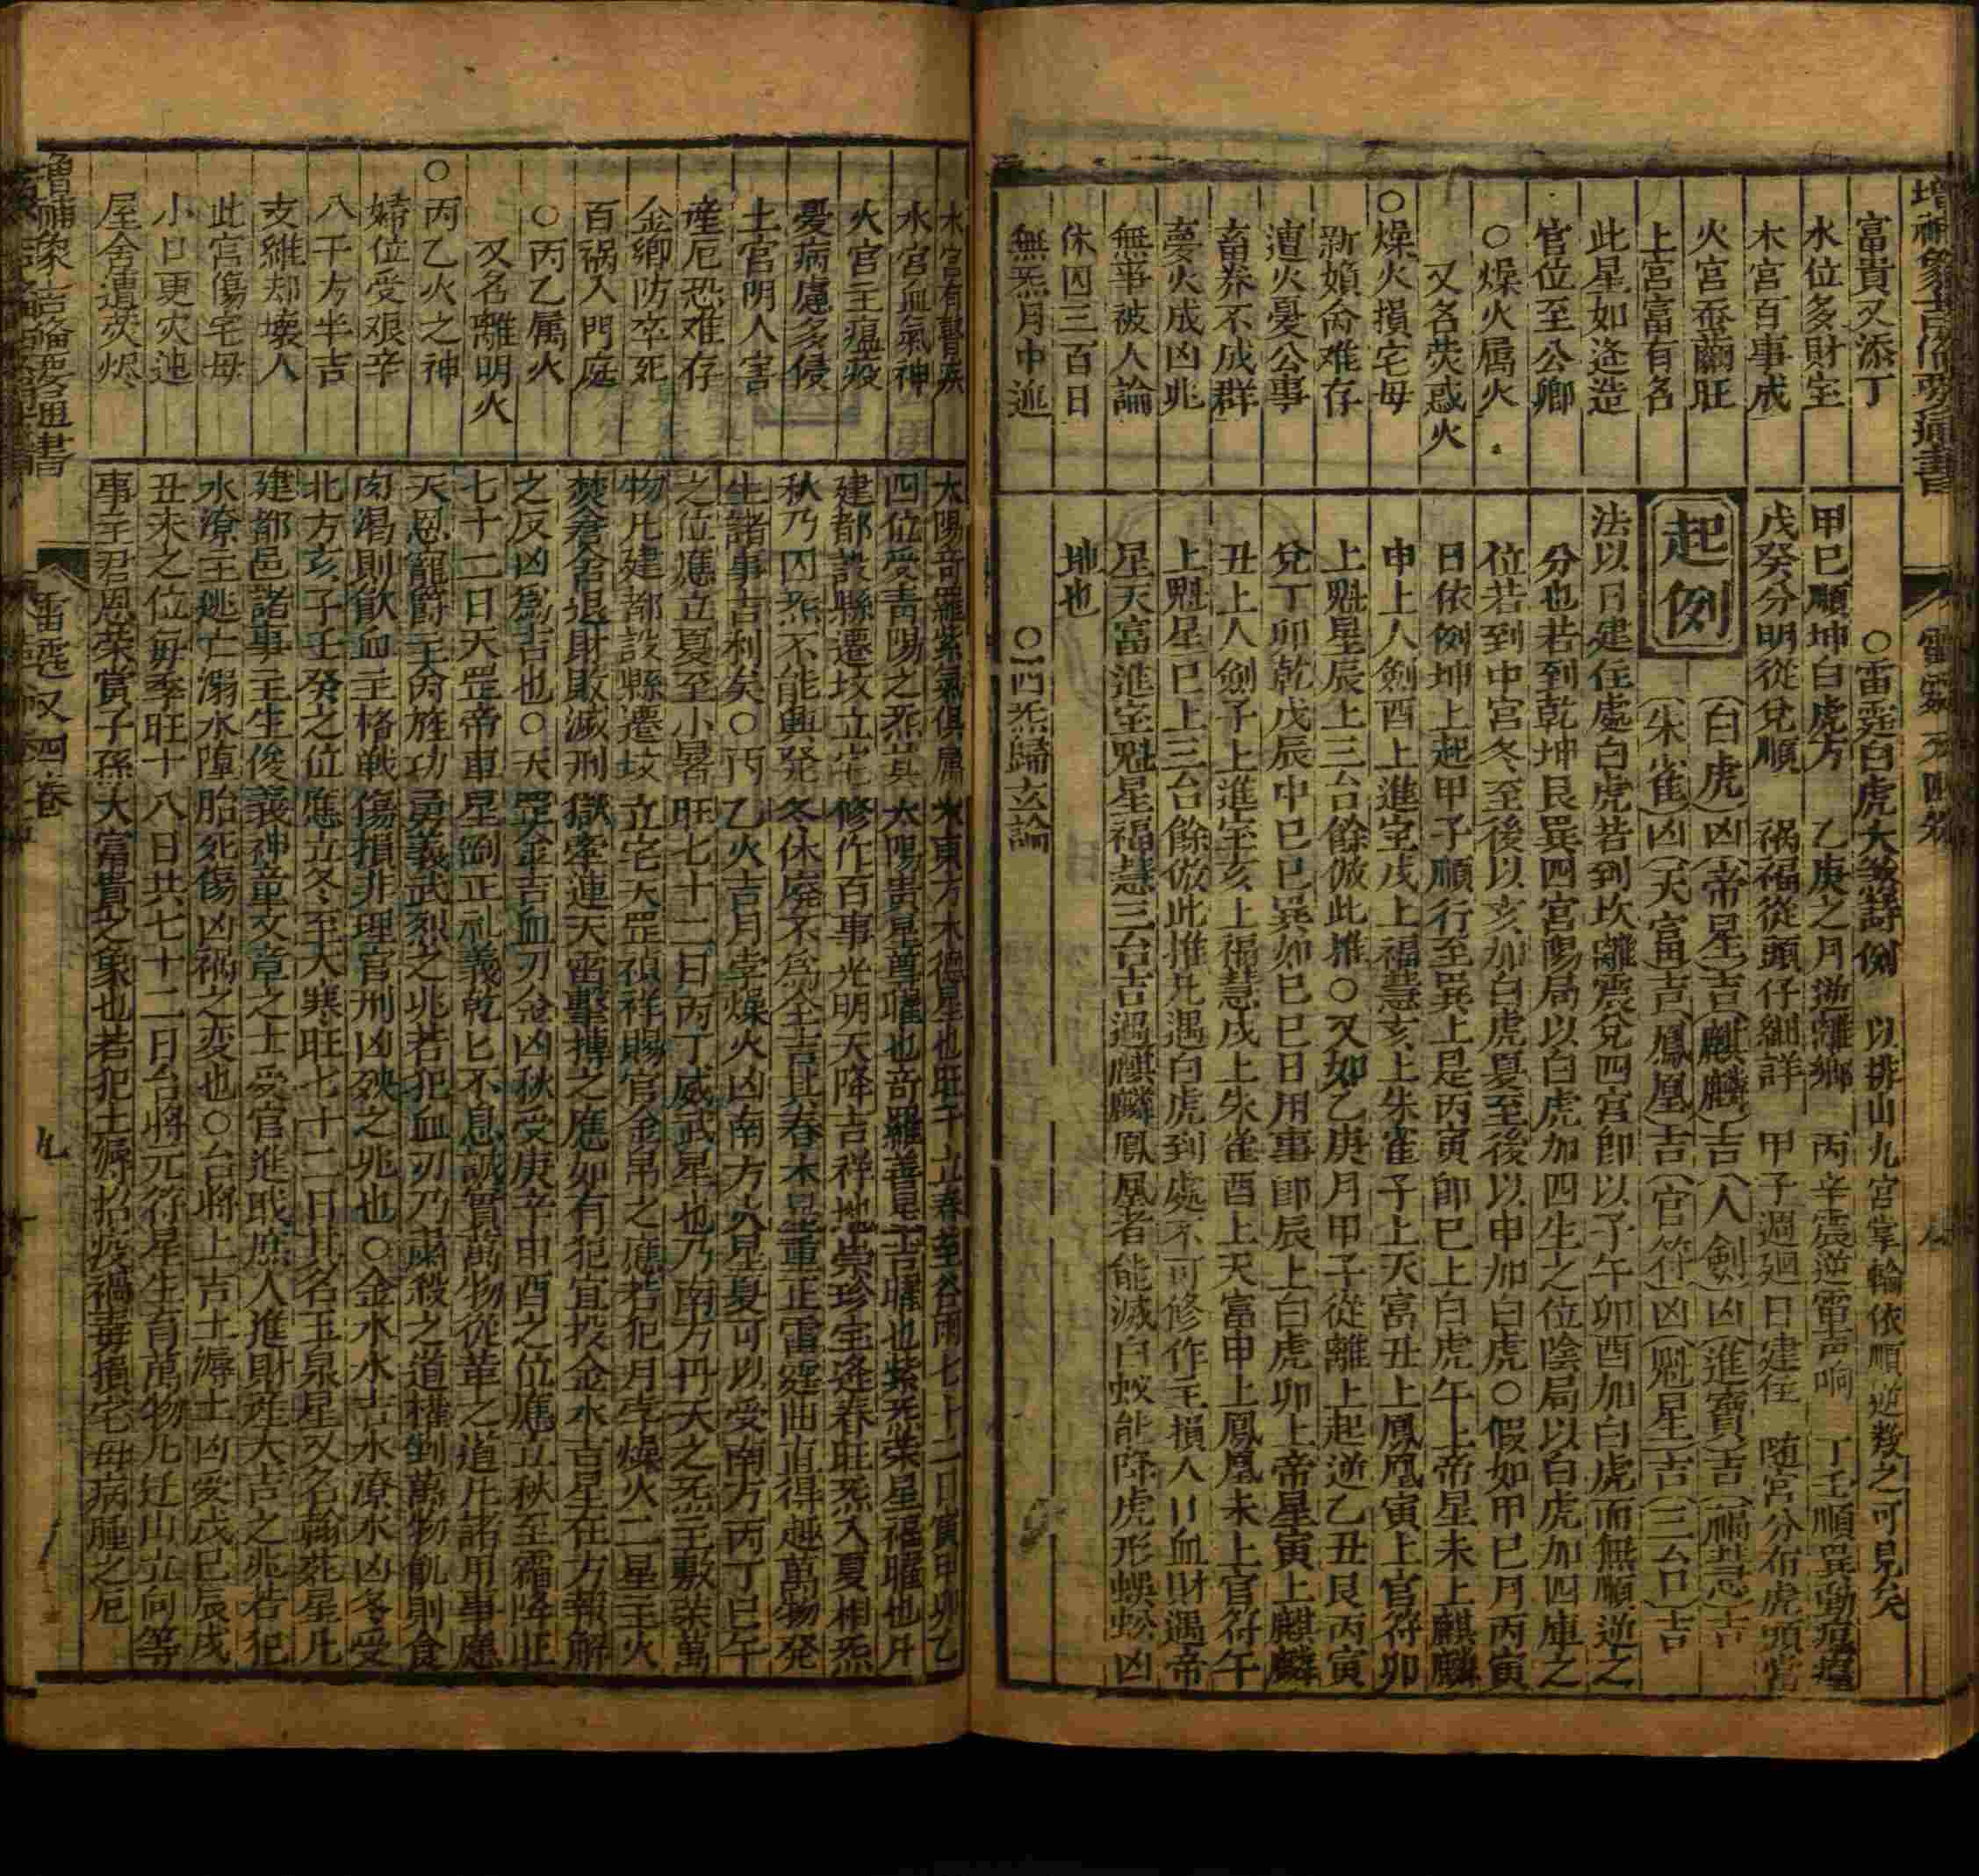 富貴又添丁
水位多財宝
木宮百事成
火宮蚕繭旺
土宮富有名
此星如逢造
官位至公卿
○燥火属火
又名荧惑火
○燥火損宅毋
新媍奩难存
遭火憂公事
畜养不成群
夢火成凶兆
無爭被人論
休囚三百日
無炁月中迍
○雷霆白虎大煞詩例　以排山九宮掌輪依順逆数之可見矣
甲巳順坤白虎方　乙庚之月逆離鄉　丙辛震逆雷声响　丁壬順巽動瘟㾮
戊癸分明從兌順　禍福從頭仔細詳　甲子週廻日建住　随宮分布虎頭當
起例
(白虎)凶(帝星)吉(麒麟)吉(人劍)凶(進寶)吉(福慧)吉
(朱雀)凶(天富)吉(鳳凰)吉(官符)凶(魁星)吉(三台)吉
法以日建住處白虎若到坎離震兌四宮卽以子午卯酉加白虎而無順逆之
分也若到乾坤艮巽四宮陽局以白虎加四生之位陰局以白虎加四庫之
位若到中宮冬至後以亥加白虎夏至後以申加白虎○假如甲巳月丙寅
日依例坤上起甲子順行至巽上是丙寅卽巳上白虎午上帝星未上麒麟
申上人劍酉上進宝戌上福慧亥上朱雀子上天富丑上鳳凰寅上官符卯
上魁星辰上三台餘倣此推○又如乙庚月甲子從離上起逆乙丑艮丙寅
兌丁卯乾戊辰中巳巳巽如巳巳日用事卽辰上白虎卯上帝星寅上麒麟
丑上人劍子上進宝亥上福慧戌上朱雀酉上天富申上鳳凰未上官符午
上魁星巳上三台餘倣此推凡遇白虎到處不可修作主損人口血財遇帝
星天富進宝魁星福慧三台吉過麒麟鳳凰者能滅白蚁能降虎形蜈蚣凶
地也
○一四炁歸玄論
水宮血氣神
火宮主瘟疫
憂病慮多侵
土宮明人害
産厄恐难存
金卿防卒死
百祸入門庭
○丙乙属火
又名離明火
○丙乙火之神
婦位受艰辛
八干方半吉
支維却壊人
此宮傷宅母
小口更灾迍
屋舍遭荧烬
太陽竒羅紫氣俱屬木東方木德星也旺于立春至谷雨七十二日寅甲卯乙
四位受青陽之炁其太陽貴星尊曜也竒羅善星吉曜也紫炁荣星福曜也凡
建都設縣遷坟立宅修作百事光明天降吉祥地崇珍宝逢春旺炁入夏相炁
秋乃囚炁不能興発冬休廢不為全吉其春木星重正雷霆曲直得越萬物発
生諸事吉利矣○丙乙火吉月孛燥火凶南方火星夏可以受南方丙丁巳午
之位應立夏至小暑旺七十二日丙丁威武星也乃南方丹天之炁主敷荣萬
物凡建都設縣遷坟立宅天罡禎祥賜官金帛之應若犯月孛燥火二星主火
焚倉舍退財敗滅刑獄牽連天雷擊摶之應如有犯宜投金水吉星在方報解
之反凶爲吉也○天罡金吉血刃金凶秋受庚辛申酉之位應立秋至霜降旺
七十二日天罡帝車星劄正礼義乾匕不息誠實萬物從革之道凡諸用事應
天恩寵爵主奇旌功勇義武烈之兆若犯血刃乃肅殺之道權剉萬物飢則食
肉渴則飲血主格戦傷損非理官刑凶殃之兆也○金水水吉水潦水凶冬受
北方亥子壬癸之位應立冬至大寒旺七十二日其名玉泉星又名翰苑星凡
建都邑諸事主生俊義神童文章之士受官進職庶人進財産大吉之兆若犯
水潦主逃亡溺水墮胎死傷凶禍之変也○台將土吉土溽土凶受戊巳辰戌
丑未之位毎季旺十八日共七十二日台將元符星生育萬物凡迁山立向等
事主君恩荣賞子孫大富貴之象也若犯土溽招疫禍毒損宅母病腫之厄
增補象吉備要通書
雷霆 又四卷
九